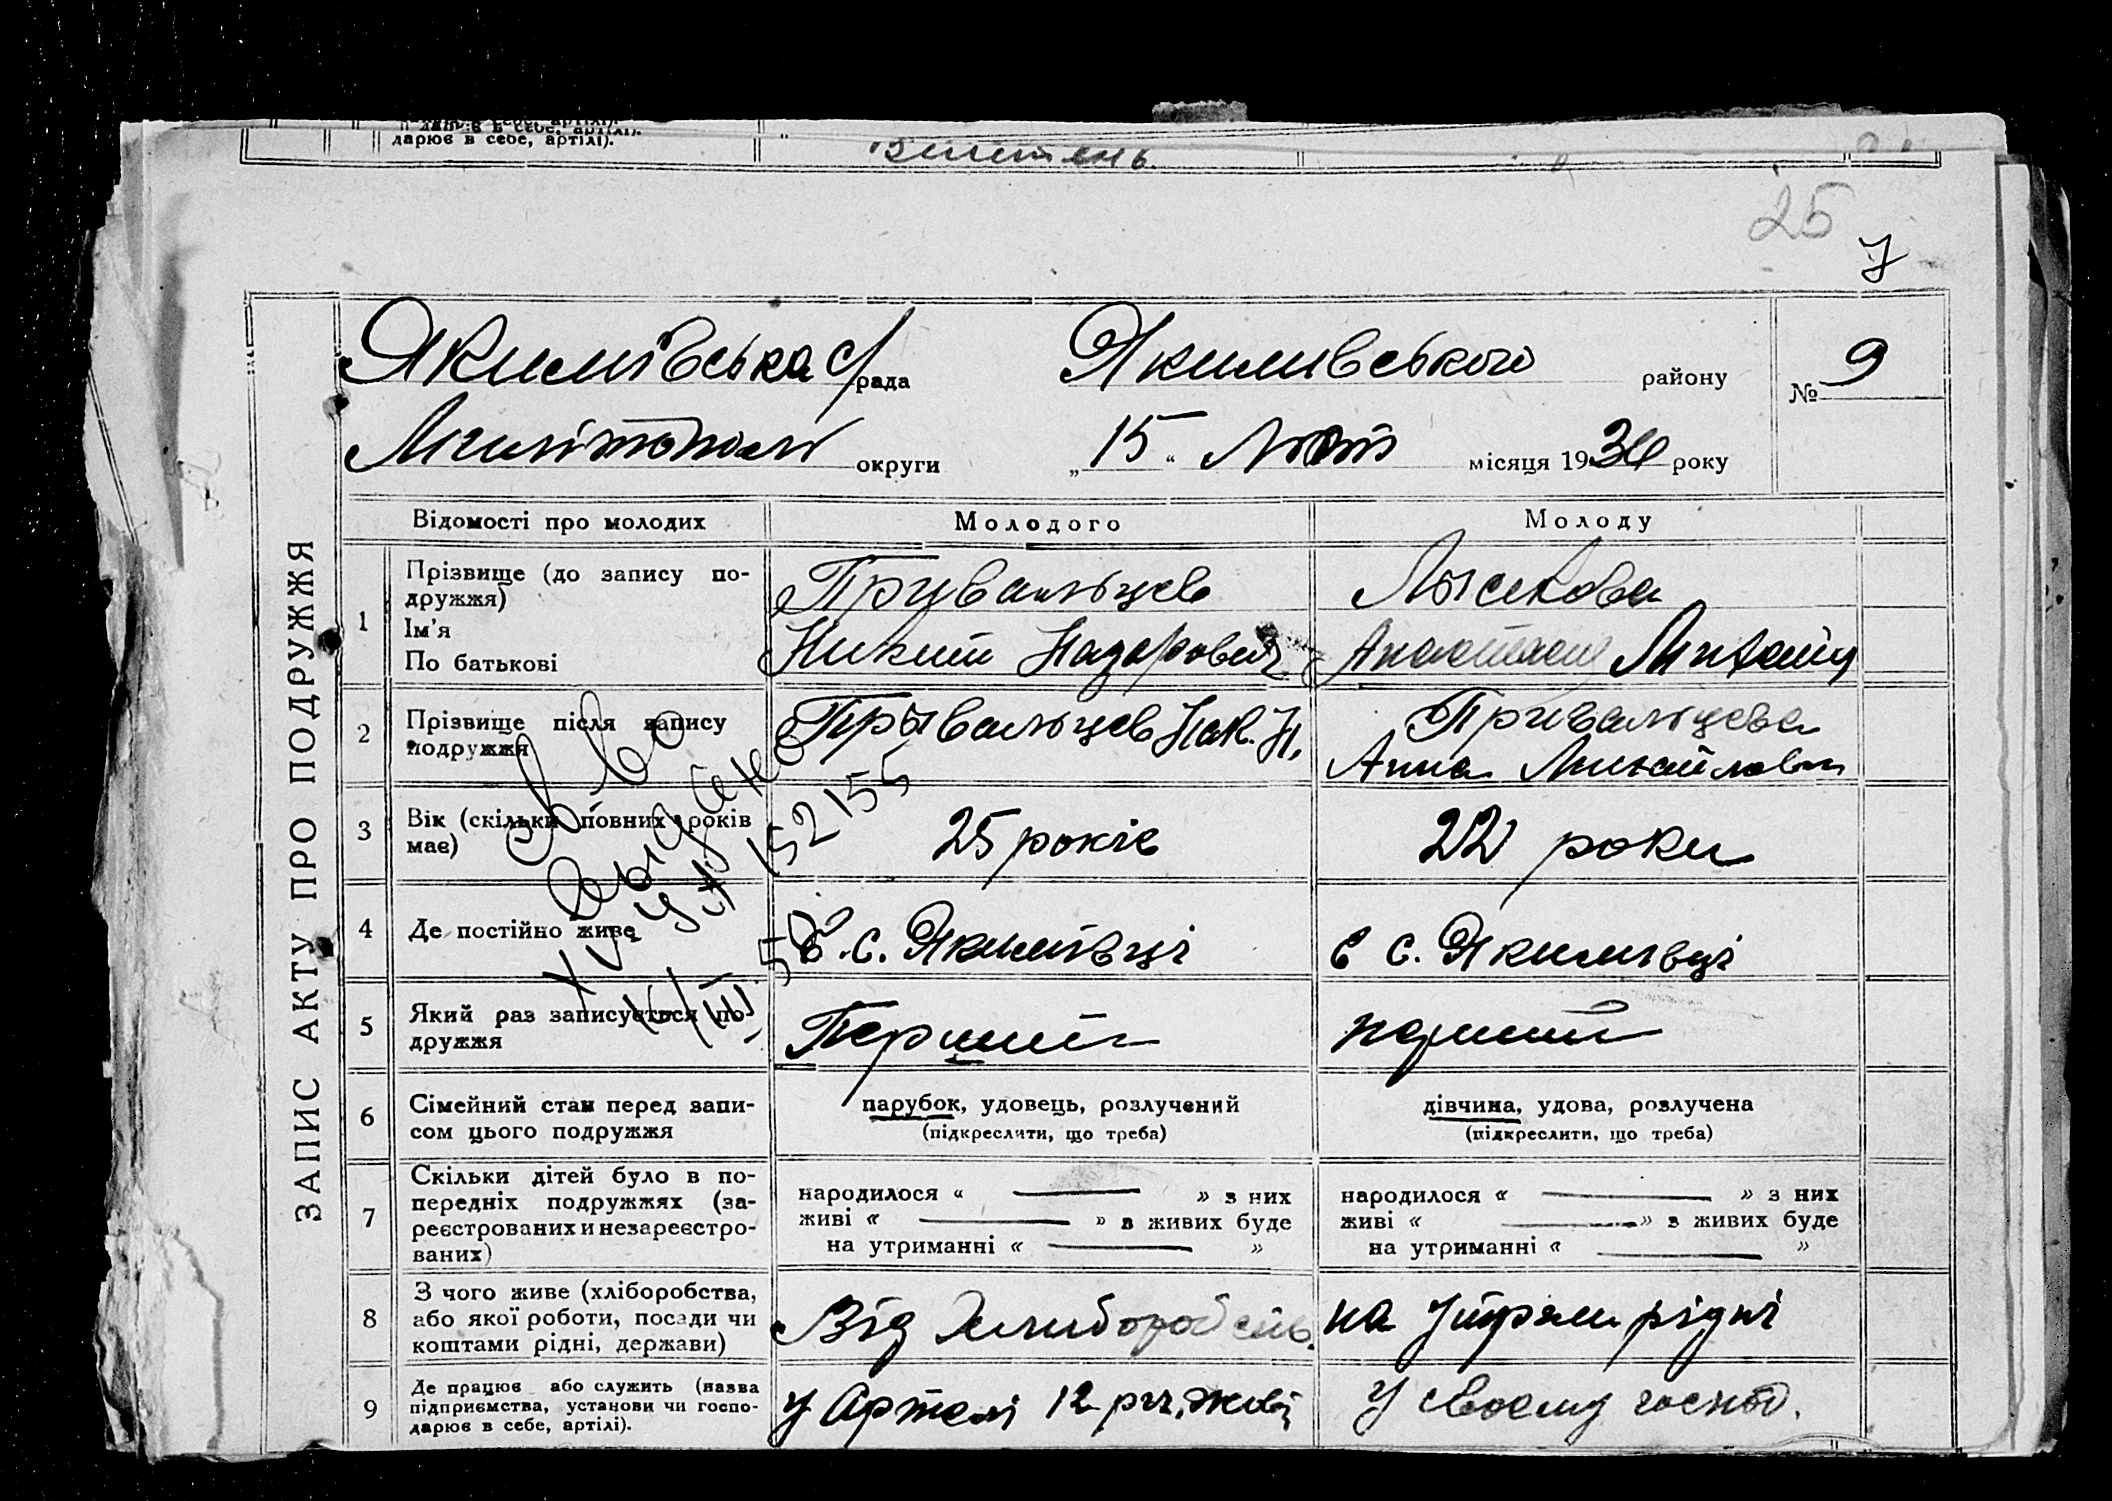 дарює в себе, артілі).
25
7
Якимівська с/рада Якимивського району № 9
Мелітополь округи „15“ Лют місяця 1930 року
ЗАПИС АКТУ ПРО ПОДРУЖЖЯ
Відомості про молодих Молодого Молоду
1 Прізвище (до запису по-
дружжя)
Ім'я
По батькові
Привальцев
Никит Назарович
Лысекова
Анастасия Михайл
2 Прізвище після запису
подружжя
Прывальцев Нак. Н.
Привальцева
Анна Михайловн
3 Вік (скільки повних років
має)
25 років
22 роки
4 Де постійно живе
в с. Якимівці
в с. Якимівці
5 Який раз записується по-
дружжя
Перший
перший
Св-во
выдано
ХУ УА 152155
6 Сімейний стан перед запи-
сом цього подружжя
парубок, удовець, розлучений
(підкреслити, що треба)
дівчина, удова, розлучена
(підкреслити, що треба)
7 Скільки дітей було в по-
передніх подружжях (за-
реєстрованих и незареєстро-
ваних)
народилося « » з них
живі « » з живих буде
на утриманні « »
народилося « » з них
живі « » з живих буде
на утриманні « »
8 З чого живе (хліборобства,
або якої роботи, посади чи
коштами рідні, держави)
Від Хлиборобств.
на Утрим рідні
9 Де працює або служить (назва
підприємства, установи чи госпо-
дарює в себе, артілі).
У Артелі 12 річ. Жовт
У своєму господ.